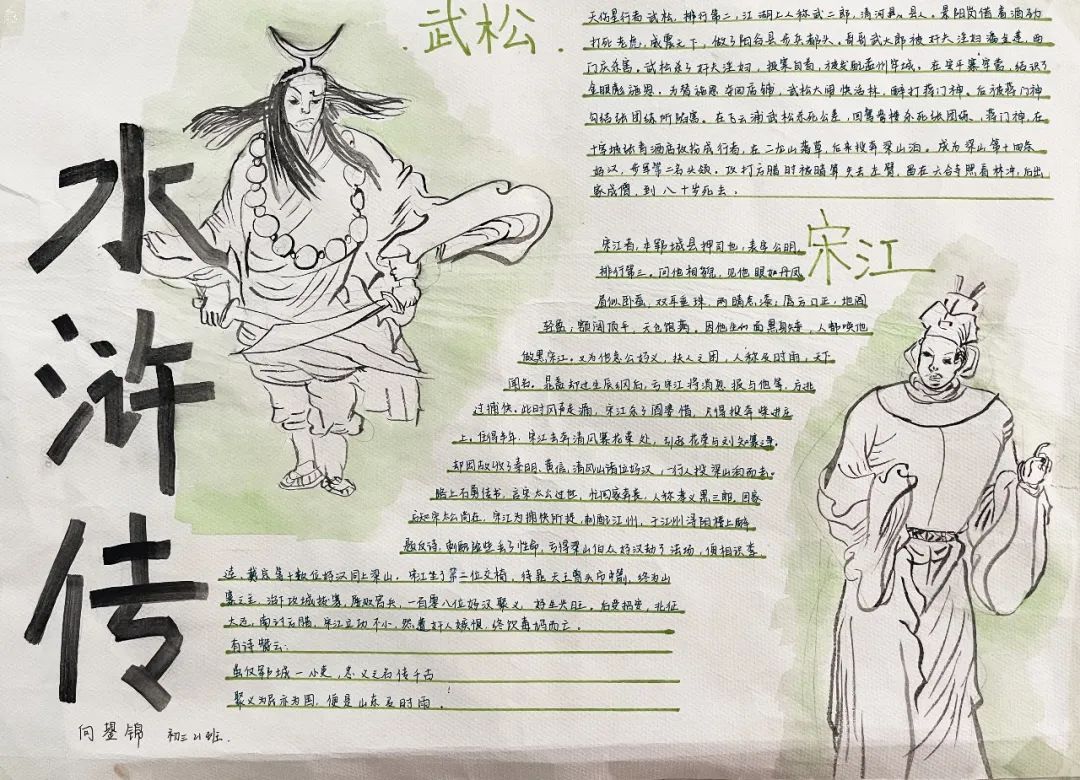 水浒传
武松
天伤星行者武松，排行第二，江湖上人称武二郎，清河县人。景阳岗借着酒劲
打死老虎，威震天下，做了阳谷县步兵都头。哥哥武大郎被奸夫淫妇潘金莲、西
门庆杀害。武松杀了奸夫淫妇，投案自首，被发配孟州牢城。在安平寨牢营，结识了
金眼彪施恩，为替施恩夺回店铺，武松大闹快活林，醉打蒋门神。后被蒋门神
勾结张团练所陷害。在飞云浦武松杀死公差，回鸳鸯楼杀死张团练、蒋门神，在
十字坡张青酒店改扮成行者，在二龙山落草，后来投奔梁山泊。成为梁山第十四条
好汉，步军第二名头领。攻打方腊时被暗算失去左臂，留在六合寺照看林冲，后出
家成僧，到八十岁死去。
宋江
宋江者，本郓城县押司也，表字公明，
排行第三。问他相貌，见他眼如丹凤
眉似卧蚕，双耳垂珠，两睛点漆；唇方口正，地阁
轻盈；额阔顶平，天仓饱满。因他生的面黑身矮，人都唤他
做黑宋江。又为他急公好义，扶人之困，人称及时雨，天下
闻知。晁盖劫过生辰纲后，亏宋江将消息报与他等，方逃
过捕快。此时风声走漏，宋江杀了阎婆惜，只得投奔柴进庄
上。住得半年，宋江去奔清风寨花荣处，引起花荣与刘知寨
却因故收了秦明、黄信，清风山诸位好汉，一行人投梁山泊而去。
路上石勇传书，言宋太公过世，忙回家奔丧，人称孝义黑三郎，回家
方知宋太公尚在，宋江为捕快所捉，刺配江州，于江州浔阳楼上醉
题反诗，刺配险些丢了性命，亏得梁山伯众好汉劫了法场，便相识李
逵、戴宗等十数位好汉同上梁山。宋江坐了第二位交椅，待晁天王曾头市中箭，终为山
寨之主，浒攻城拔寨，屡败官兵，一百零八位好汉聚义，好生兴旺。后受招安，北征
大辽，南讨方腊，宋江立功不小，然遭奸人嫉恨，终饮毒酒而亡。
有诗赞云：
虽仅郓城一小吏，忠义之名传千古
聚义为民亦为国，便是山东及时雨。
向  锦 初三21班.